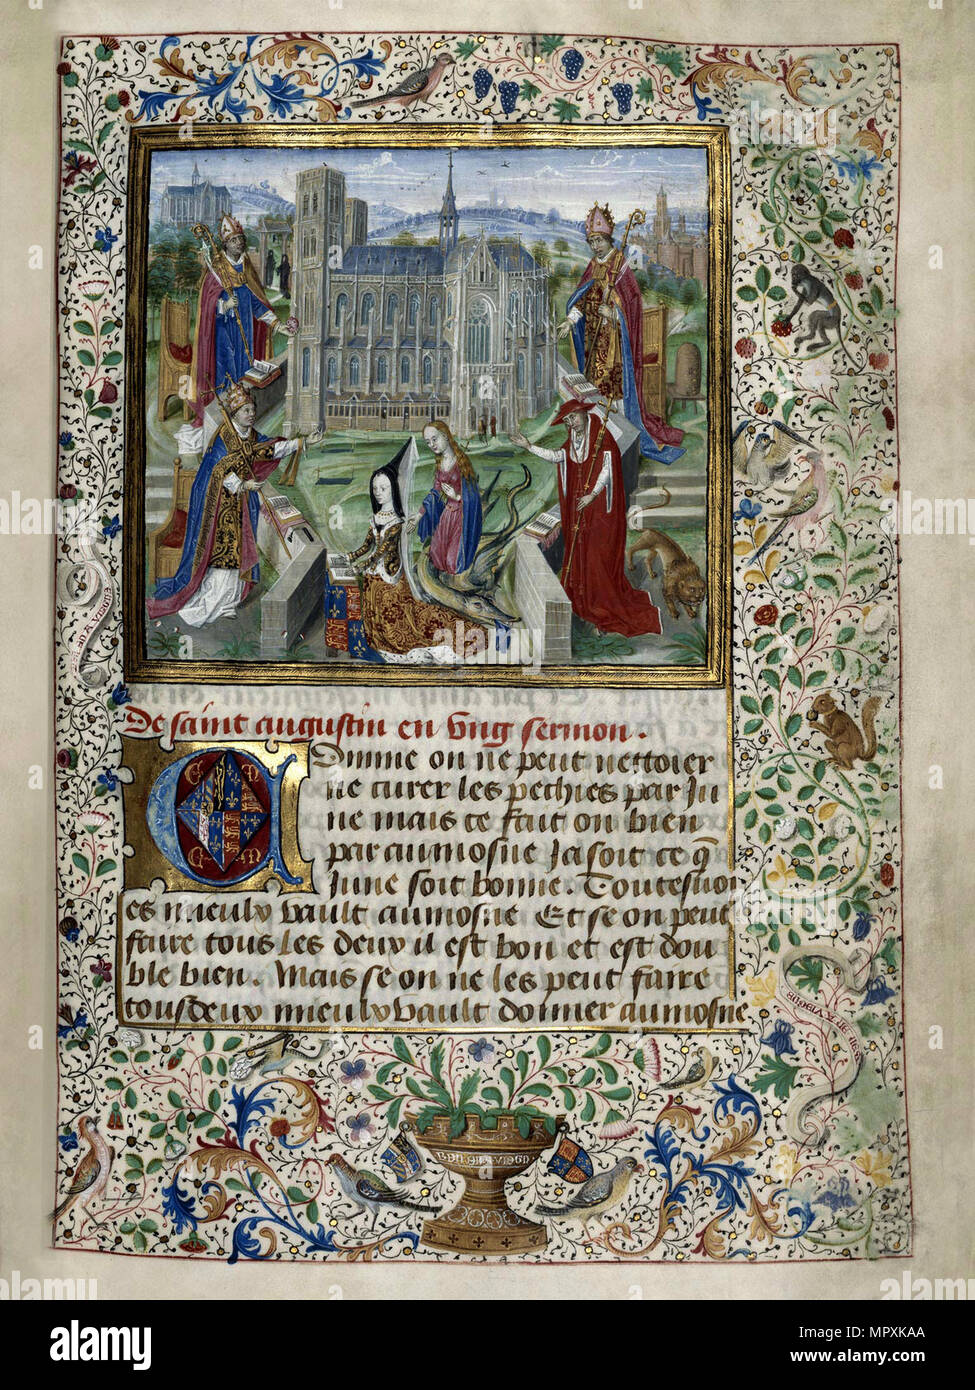 De saint augustin en ung sermon.
Omme on ne peut nettoier
ne curer les pechies par Ju
ne mais ce fait on bien
par aumosne Ja soit ce q̃
June soit bonne. Toutesuoi
es mieulx vault aumosne Et se on peut
faire tous les deux il est bon et est dou
ble bien. Mais se on ne les peut faire
tousdeux mieulx vault donner aumosne
BIEN EN AVIENGNE
BIEN EN AVIENGNE
C M
C M
a
alamy
Image ID: MPXKAA
www.alamy.com